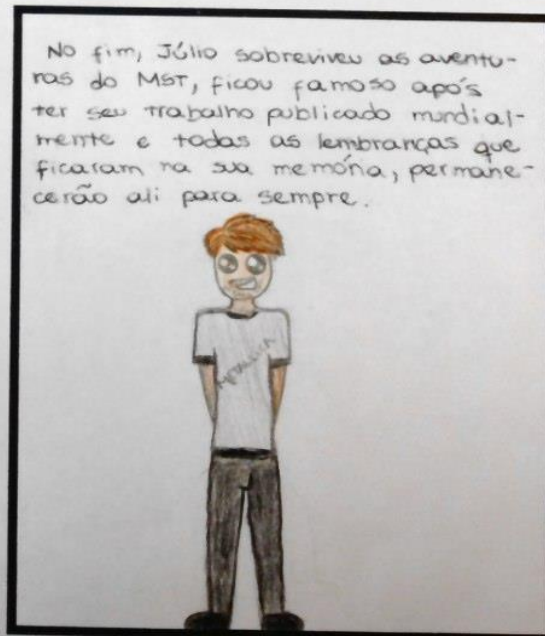 No fim, Júlio sobreviveu as aventu-
ras do MST, ficou famoso após
ter seu trabalho publicado mundial-
mente e todas as lembranças que
ficaram na sua memória, permane-
cerão ali para sempre.
METALLICA